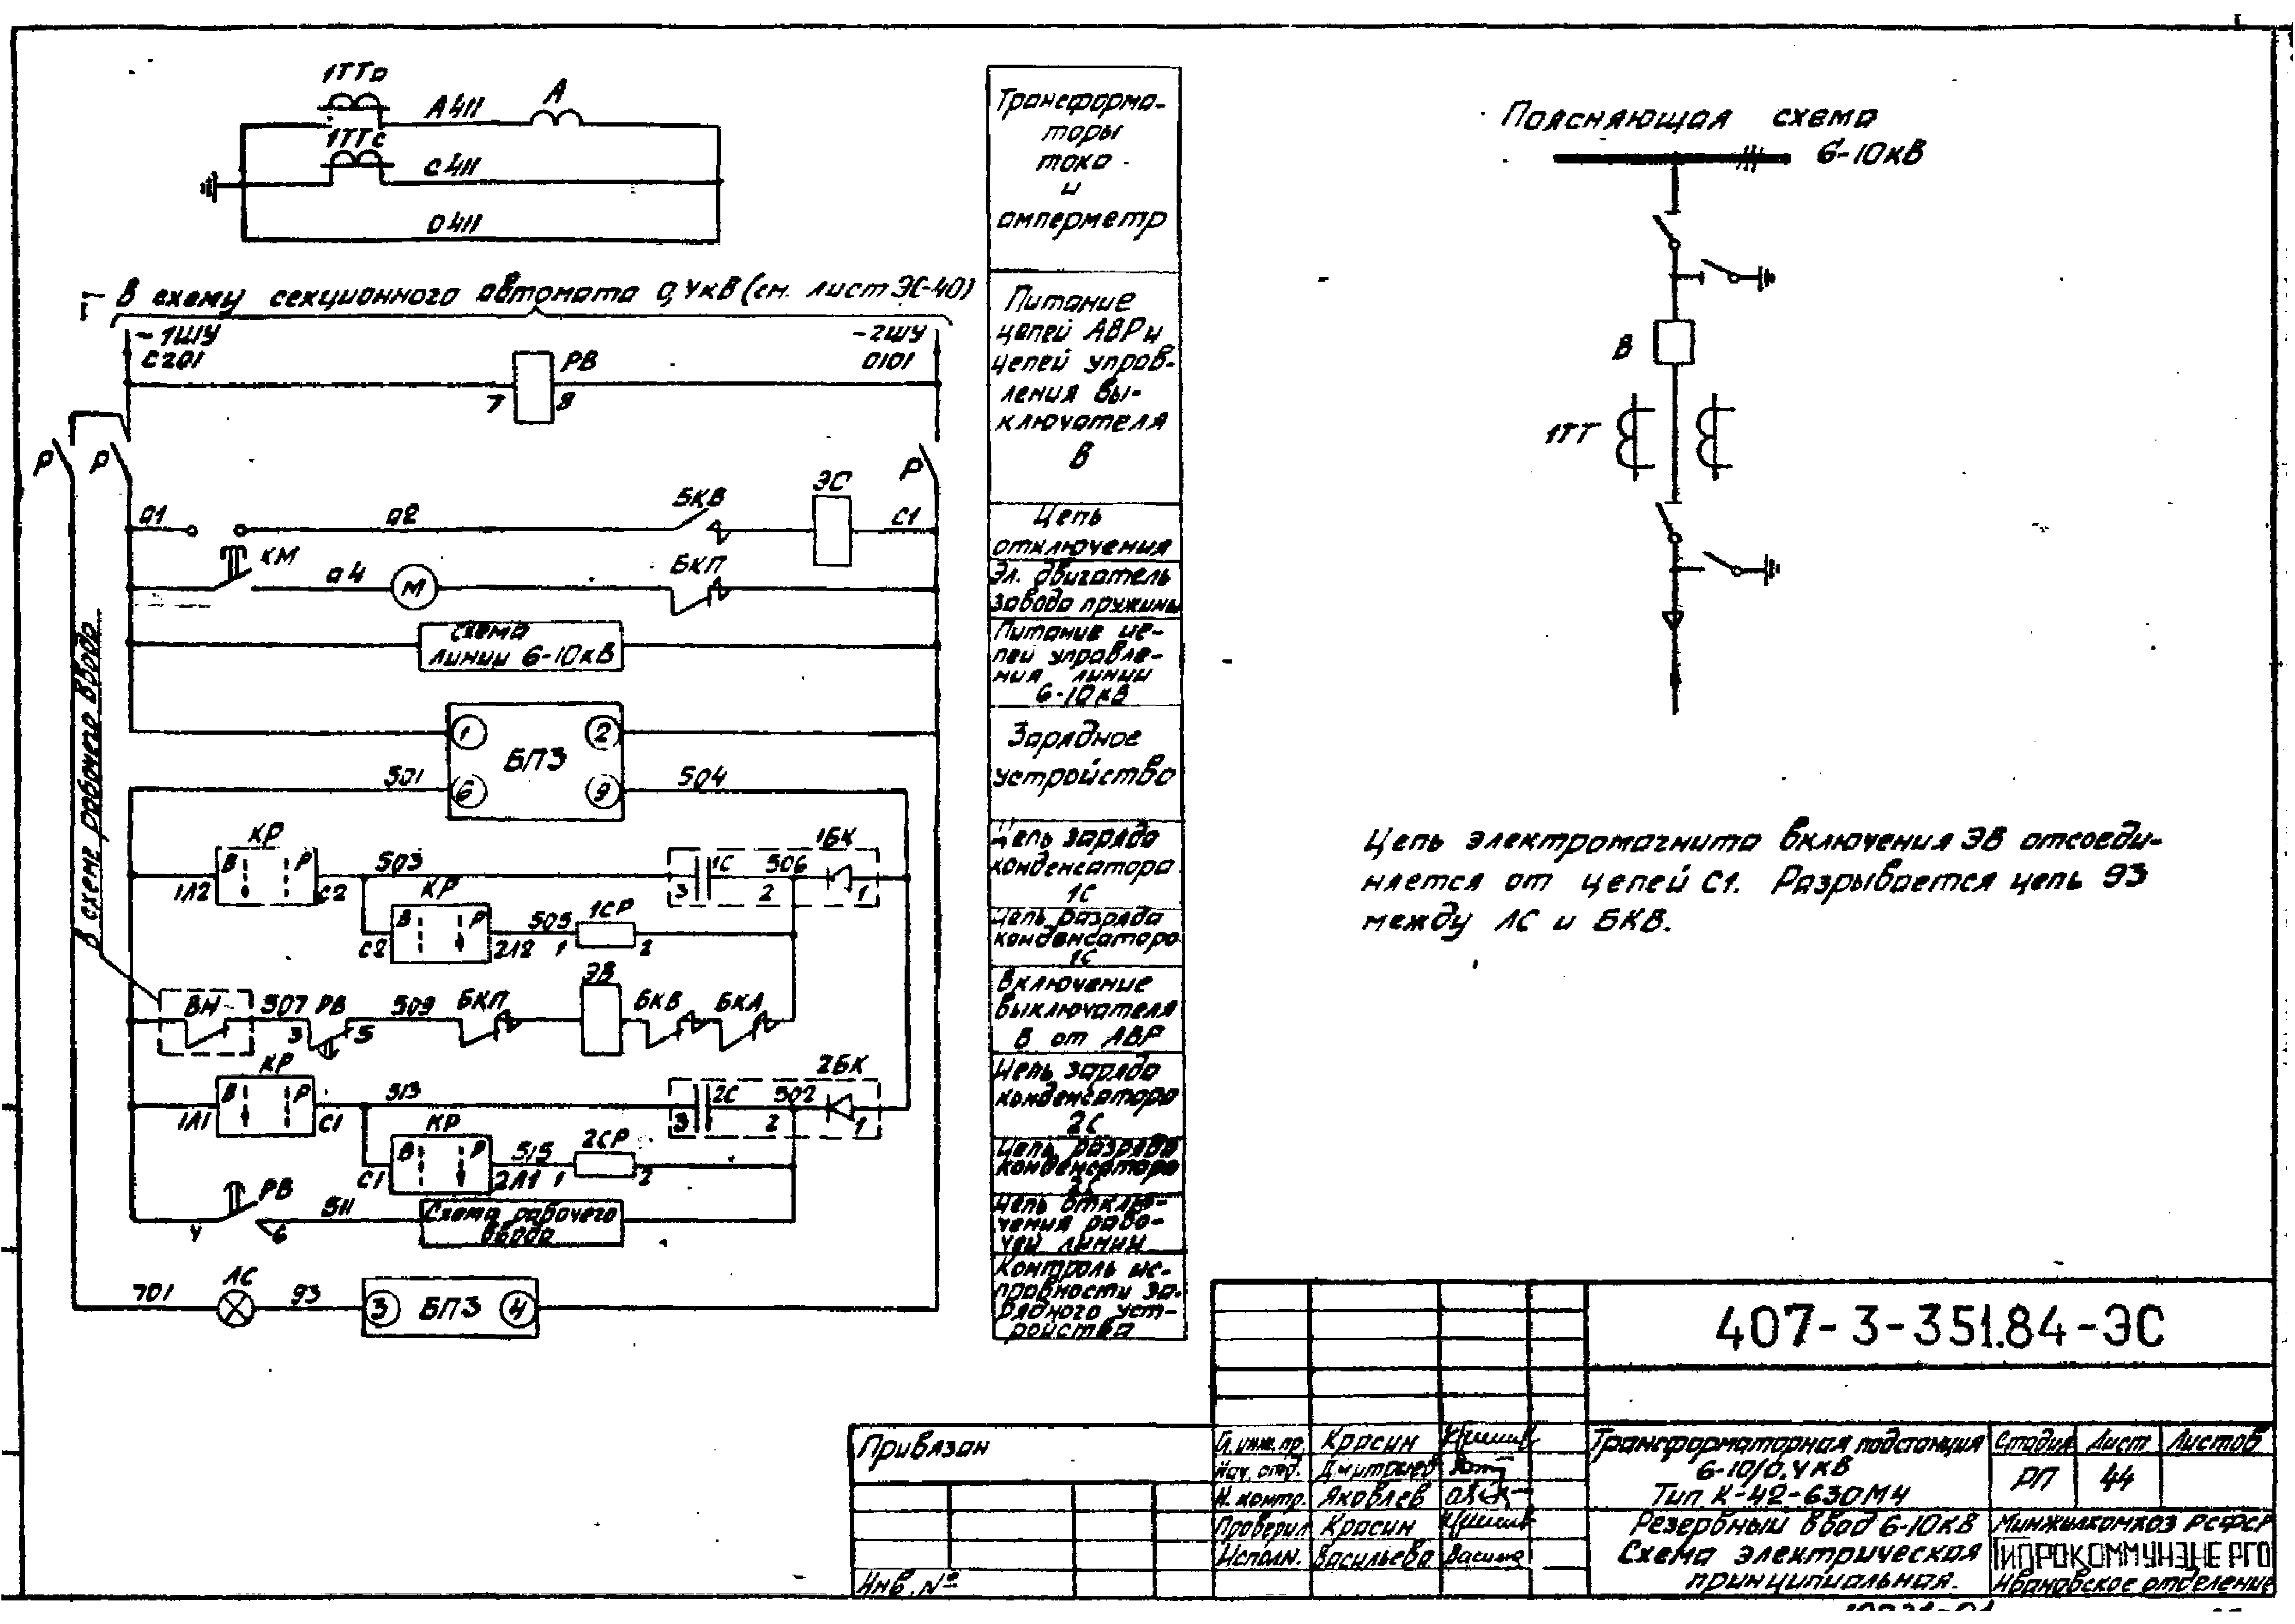 1ТТа
А411
А
1ТТс
С411
0411
В схему секционного автомата 0,4кВ (см. лист ЭС-40)
~1ШУ
С201
~2ШУ
0101
РВ
7
8
Р
Р
Р
01
02
БКВ
ЭС
С1
КМ
04
М
БКП
схема
линии 6-10кВ
В схеме рабочего ввода
1
2
БПЗ
6
9
501
504
КР
В
Р
1Л2
С2
503
1БК
1С
506
3
2
1
КР
В
Р
С2
2Л2
505
1СР
1
2
ВН
507
РВ
3
5
509
БКП
ЭВ
БКВ
БКА
КР
В
Р
1Л1
С1
513
2БК
2С
502
3
2
1
КР
В
Р
С1
2Л1
515
2СР
1
2
РВ
4
6
511
Схема рабочего
ввода
701
ЛС
93
3
БПЗ
4
Трансформа-
торы
тока
и
амперметр
Питание
цепей АВР и
цепей управ-
ления вы-
ключателя
В
Цепь
отключения
Эл. двигатель
завода пружины
Питание це-
пей управле-
ния линии
6-10кВ
Зарядное
устройство
Цепь заряда
конденсатора
1С
Цепь разряда
конденсатора
1С
Включение
выключателя
В от АВР
Цепь заряда
конденсатора
2С
Цепь разряда
конденсатора
2С
Цепь отклю-
чения рабо-
чей линии
Контроль ис-
правности за-
рядного уст-
ройства
Поясняющая схема
6-10кВ
В
1ТТ
Цепь электромагнита включения ЭВ отсоеди-
няется от цепей С1. Разрывается цепь 93
между ЛС и БКВ.
407-3-351.84-ЭС
Привязан
Инв. №
Гл. инж. пр. Красин
Нач. отд. Дмитриев
Н. контр. Яковлев
Проверил Красин
Исполн. Васильева
Трансформаторная подстанция
6-10/0,4кВ
Тип К-42-630М4
Стадия Лист Листов
РП 44
Резервный ввод 6-10кВ
Схема электрическая
принципиальная.
Минжилкомхоз РСФСР
ГИПРОКОММУНЭНЕРГО
Ивановское отделение